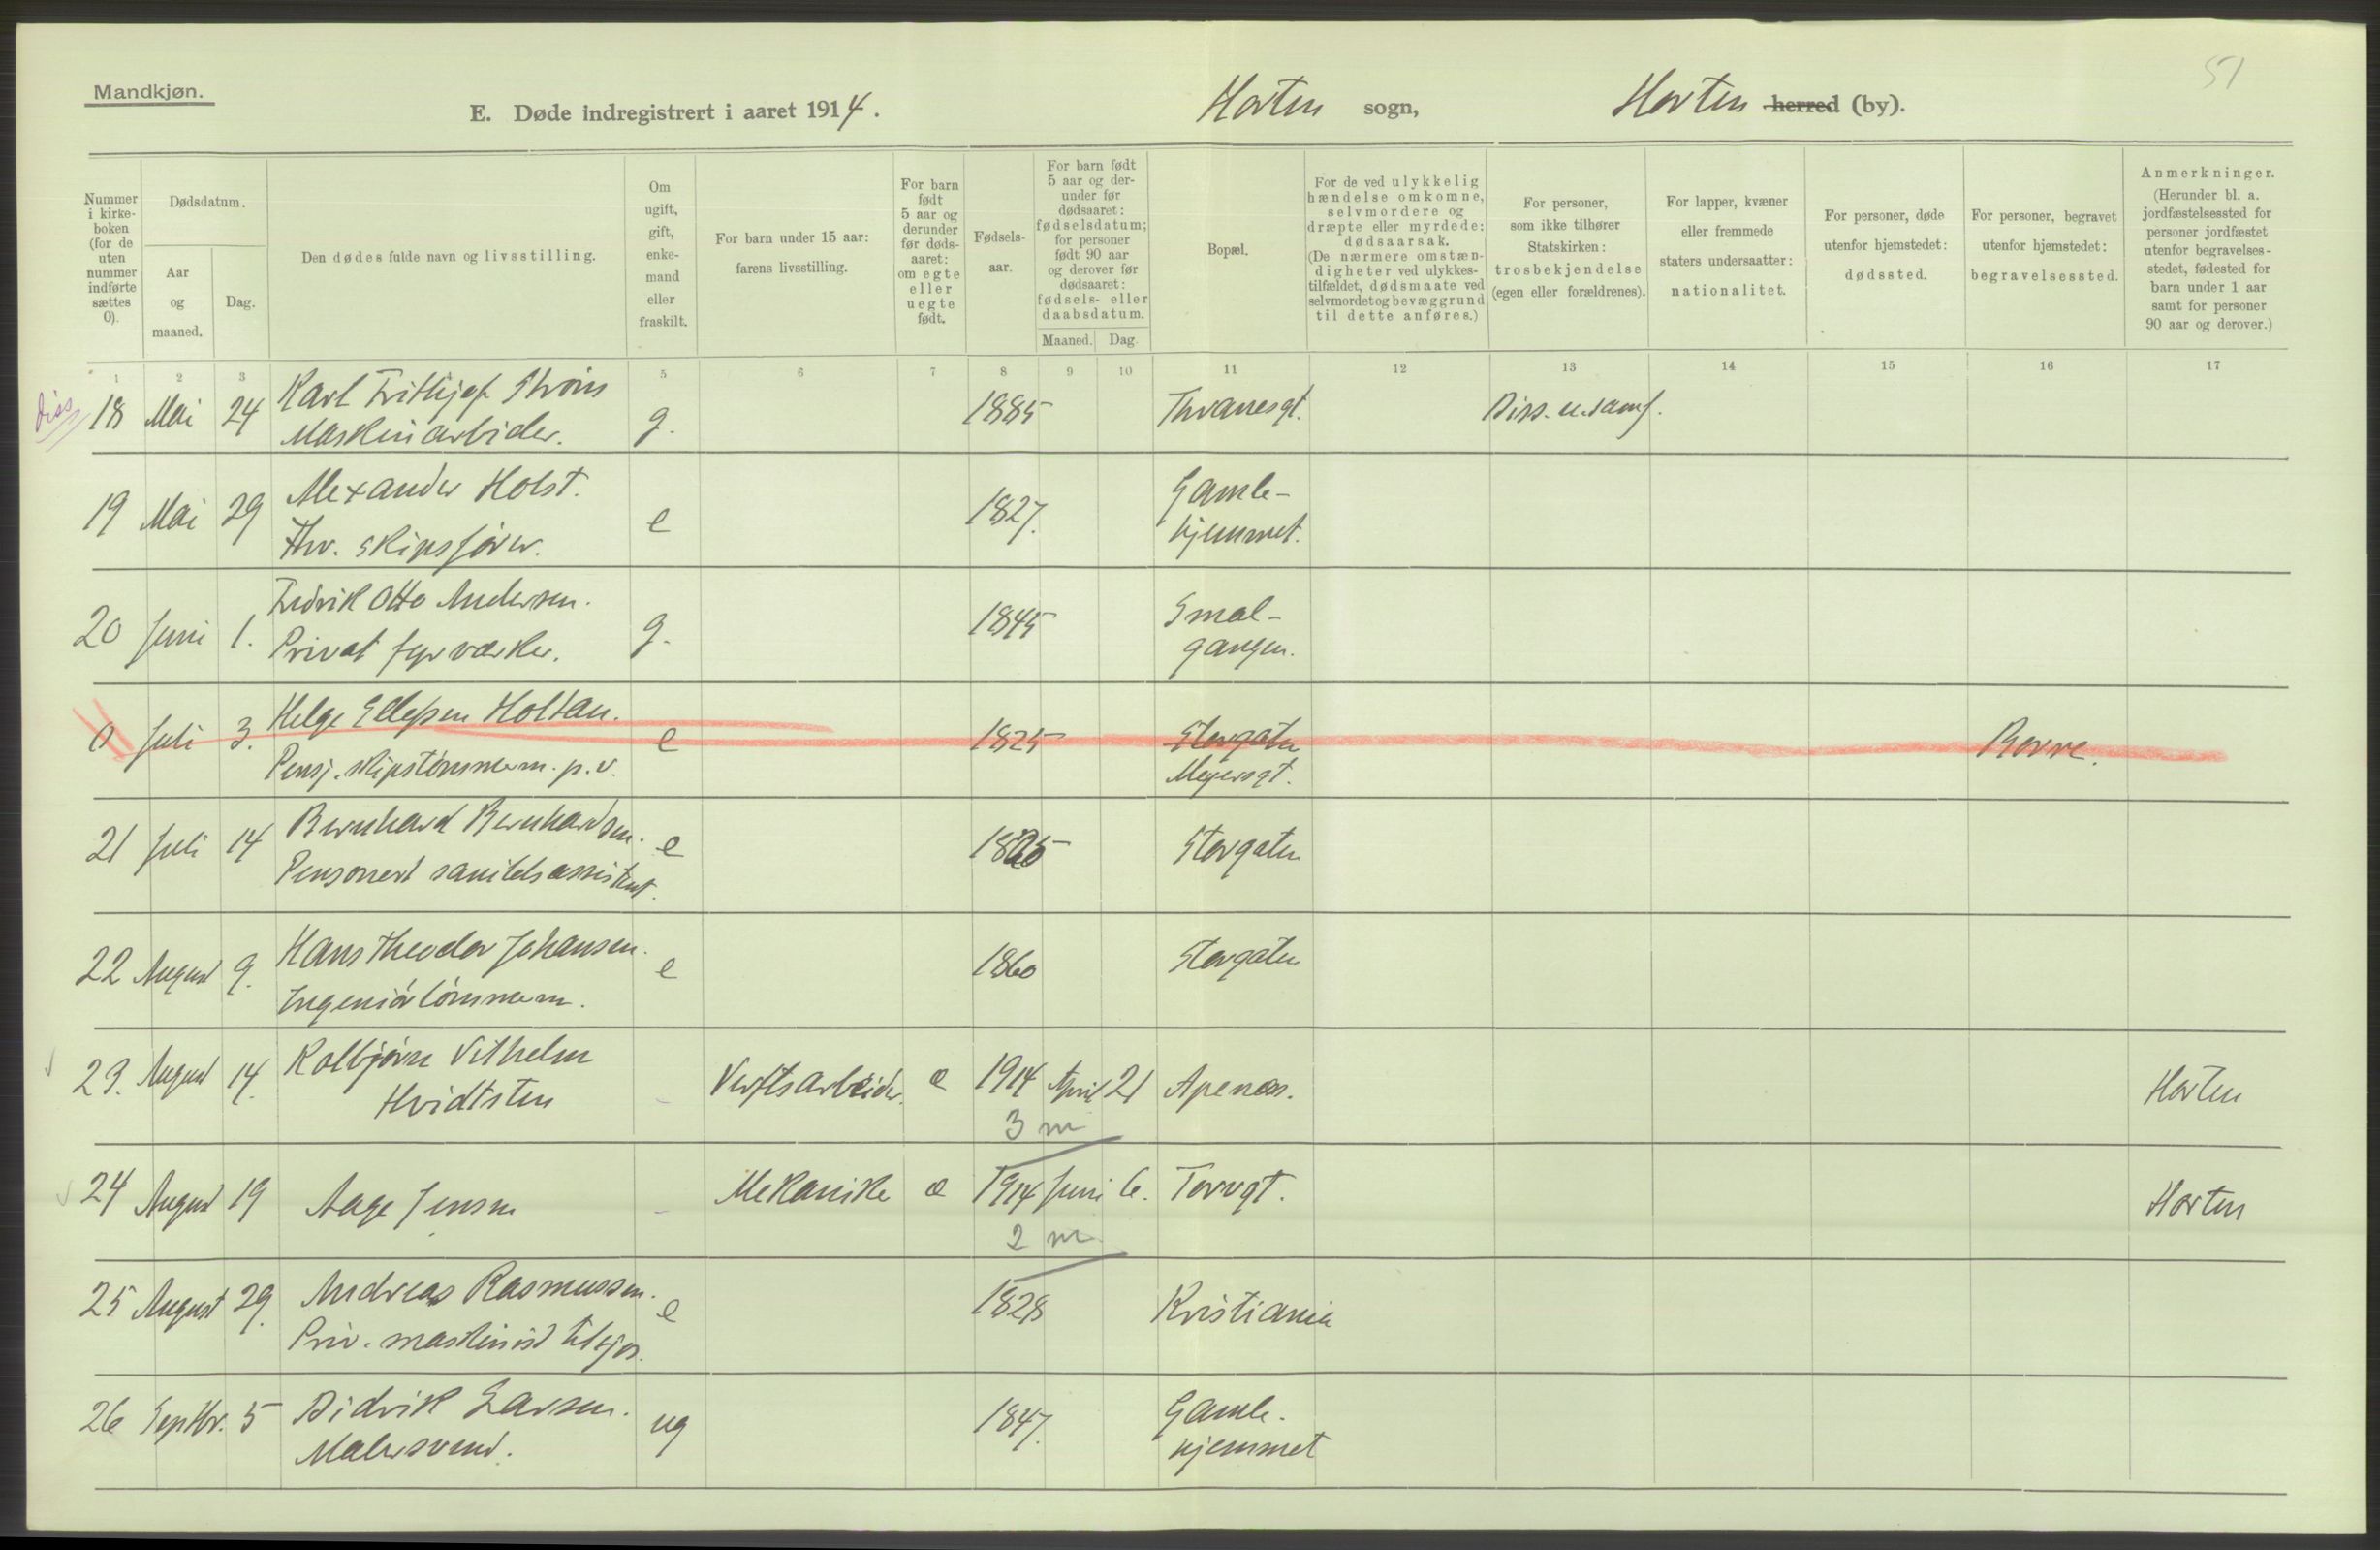 51
Mandkjøn.
E. Døde indregistrert i aaret 1914. Horten sogn, Horten herred (by).
Nummer i kirke-boken (for de uten nummer indførte sættes 0).
Dødsdatum.
Aar og maaned.
Dag.
Den dødes fulde navn og livsstilling.
Om ugift, gift, enke-mand eller fraskilt.
For barn under 15 aar: farens livsstilling.
For barn født 5 aar og derunder før døds-aaret: om egte eller uegte født.
Fødsels-aar.
For barn født 5 aar og der-under før dødsaaret: fødselsdatum; for personer født 90 aar og derover før dødsaaret: fødsels- eller daabsdatum.
Maaned. Dag.
Bopæl.
For de ved ulykkelig hændelse omkomne, selvmordere og dræpte eller myrdede: dødsaarsak. (De nærmere omstæn-digheter ved ulykkes-tilfældet, dødsmaate ved selvmordet og bevæggrund til dette anføres.)
For personer, som ikke tilhører Statskirken: trosbekjendelse (egen eller forældrenes).
For lapper, kvæner eller fremmede staters undersaatter: nationalitet.
For personer, døde utenfor hjemstedet: dødssted.
For personer, begravet utenfor hjemstedet: begravelsessted.
Anmerkninger. (Herunder bl. a. jordfæstelsessted for personer jordfæstet utenfor begravelses-stedet, fødested for barn under 1 aar samt for personer 90 aar og derover.)
1 2 3 5 6 7 8 9 10 11 12 13 14 15 16 17
Diss
18 Mai 24 Karl Frithjof Strøm g. 1885 Thranesgt. Diss. u. samf.
Maskinarbider.
19 Mai 29 Alexander Holst. e 1827. Gamle-
Fhv. skipsfører. hjemmet.
20 Juni 1. Fredrik Otto Andersen. g. 1845 Smal-
Privat fyrværker. gangen.
0 Juli 3. Helge Ellefsen Holtan. e 1825 Storgaten Borre.
Pensj. skipstømmerm. p.v. Meyersgt.
21 Juli 14 Bernhard Bernhardsen. e Storgaten
Pensonert sanitetsassistent.
22 August 9. Hans Theodor Johansen. e 1860 Storgaten
Ingeniørtømmerm.
23. August 14. Kolbjørn Vilhelm - Verftsarbeider. æ 1914 April 21 Apenæs. Horten
Hvidtsten
3 m
24 August 19 Aage Jensen - Mekanike æ 1914 Juni 6. Torvgt. Horten
2 m
25 August 29. Andreas Rasmussen. e 1828 Kristiania
Priv. maskinist tilsjøs.
26 Septbr. 5 Didrik Larsen. ug 1847. Gamle-
Malersvend. hjemmet